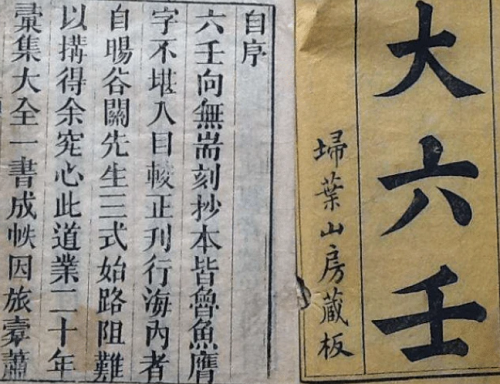 大六壬
埽葉山房藏板
自序
六壬向無耑刻抄本皆魯魚鴈
字不堪入目較正刊行海內者
自暘谷關先生三式始路阻難
以搆得余究心此道業二十年
彚集大全一書成帙因旅橐蕭